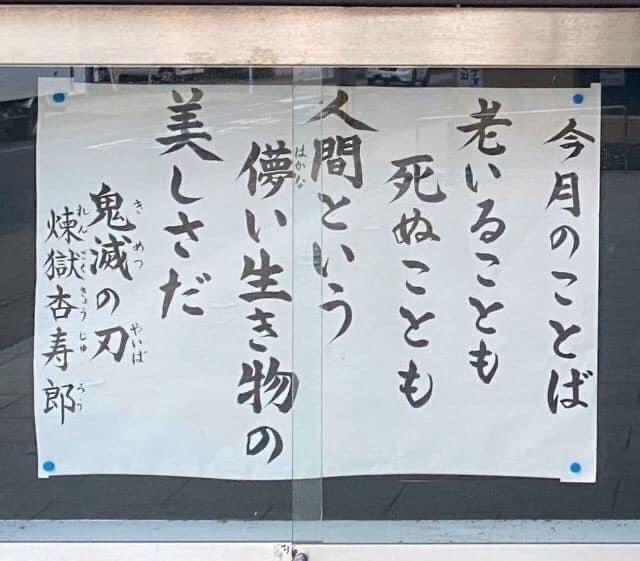 今月のことば
老いることも
死ぬことも
人間という
儚い生き物の
はかな
美しさだ
鬼滅の刃
き めつ やいば
煉獄杏寿郎
れん ごく きょう じゅ ろう